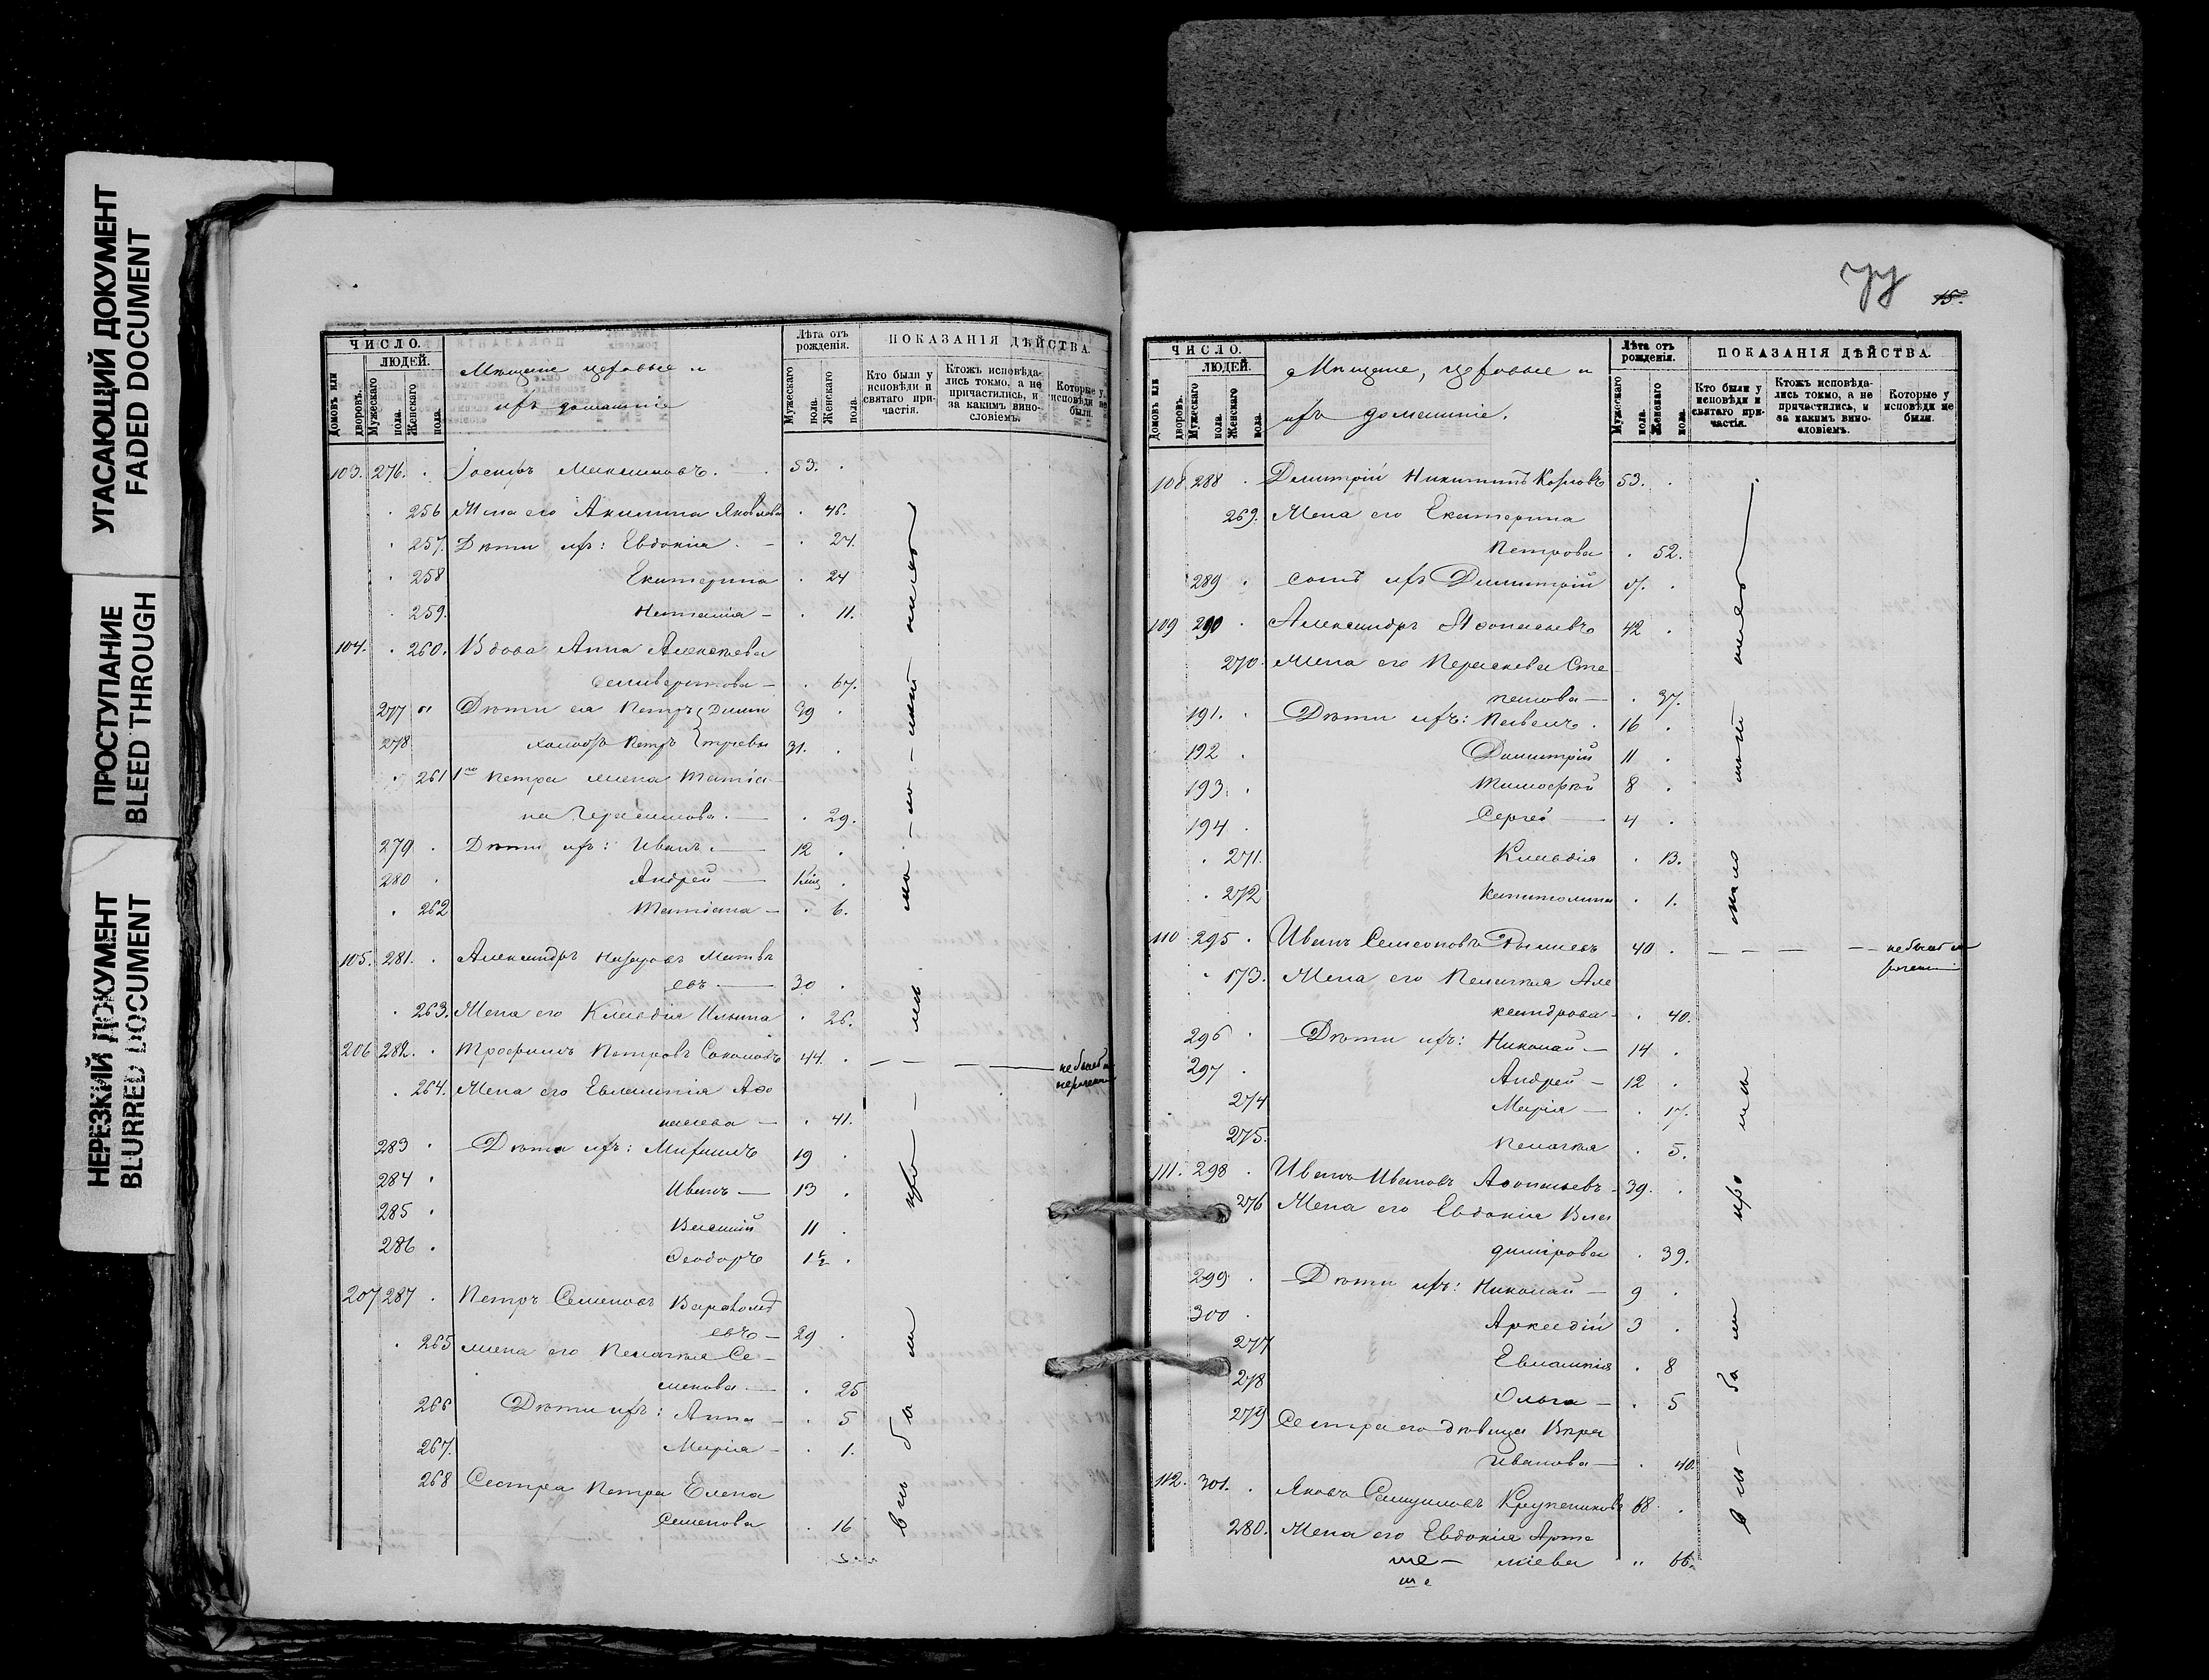 УГАСАЮЩИЙ ДОКУМЕНТ
FADED DOCUMENT
ПРОСТУПАНИЕ
BLEED THROUGH
НЕРЕЗКИЙ ДОКУМЕНТ
BLURRED DOCUMENT
ЧИСЛО.
ЛЮДЕЙ.
Домовъ или дворовъ.
Мужескаго пола.
Женскаго пола.
Мещане цеховые и
ихъ домашніе
Лѣта отъ рожденія.
Мужескаго пола.
Женскаго пола.
ПОКАЗАНІЯ ДѢЙСТВА.
Кто были у исповѣди и святаго причастія.
Ктожъ исповѣдались токмо, а не причастились, и за какимъ винословіемъ.
Которые у исповѣди не были.
103. 276. Іосифъ Максимовъ. 53.
256 Жена его Акилина Яковлева 46.
257. Дѣти ихъ: Евдокія 27.
258 Екатерина 24
259. Наталія 11.
104. 260. Вдова Анна Алексѣева
Селиверстова 67.
277 Дѣти ея Петръ Дими 39
278 Петръ тріевы 31.
261 1го Петра жена Татіа
на Герасимова. 29.
279 Дѣти ихъ: Иванъ 12
280 Андрей
262 Татіана 6.
105. 281. Александръ Назаровъ Матвѣ
евъ 30
263. Жена его Клавдія Ильина 26.
206 282. Трофимъ Петровъ Соколовъ 44. не былъ
264. Жена его Евлампія Аѳо
насьева 41.
283 Дѣти ихъ: Михаилъ 19
284 Иванъ 13
285 Василій 11
286 Ѳеодоръ 1½
207 287 Петръ Семеновъ
евъ 29
265 жена его Пелагея Се
менова 25
266 Дѣти ихъ: Анна 5
267. Марія 1.
268 Сестра Петра Елена
Семенова 16
15.
ЧИСЛО.
ЛЮДЕЙ.
Домовъ или дворовъ.
Мужескаго пола.
Женскаго пола.
Мещане, цеховые и
ихъ домашніе.
Лѣта отъ рожденія.
Мужескаго пола.
Женскаго пола.
ПОКАЗАНІЯ ДѢЙСТВА.
Кто были у исповѣди и святаго причастія.
Ктожъ исповѣдались токмо, а не причастились, и за какимъ винословіемъ.
Которые у исповѣди не были.
108 288 Димитрій Никитинъ Козловъ 53.
269. Жена его Екатерина
Петрова 52.
289 сынъ ихъ Димитрій
109 290 Александръ Аѳонасьевъ 42
270. Жена его Параскева Сте
панова 37.
191. Дѣти ихъ: Павелъ 16
192 Димитрій 11
193. Тимофей 8
194 Сергей 4
271. Клавдія 13.
272 Капитолина 1.
110 295 Иванъ Семеновъ 40 не былъ
173. Жена его Пелагея Але
ксандрова 40.
296 Дѣти ихъ: Николай 14
297 Андрей 12
274 Марія 17.
275. Пелагея 5.
111. 298 Иванъ Ивановъ Аѳонасьевъ 39.
276 Жена его Евдокія Вла
димірова 39.
299 Дѣти ихъ: Николай 9
300 Аркадій 3
277 Евлампія 8
278 Ольга 5
279 Сестра его дѣвица Вѣра
Иванова 40.
112. 301. Яковъ Самуиловъ Крупениковъ 68
280. Жена его Евдокія Арте
міева 66.